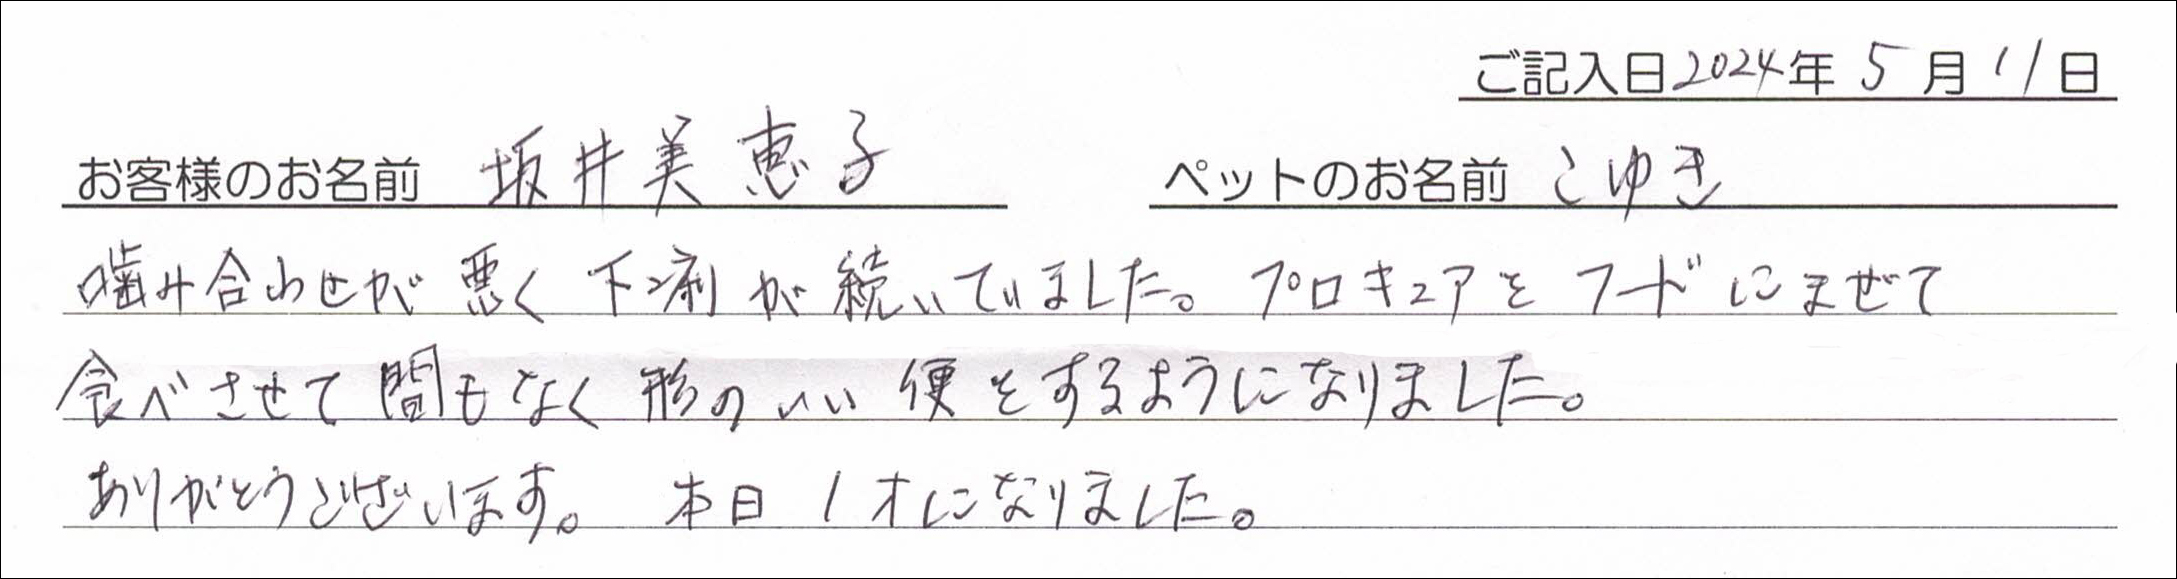 ご記入日2024年 5月 11日
お客様のお名前 坂井美恵子 ペットのお名前 こゆき
噛み合わせが悪く下痢が続いていました。プロキュアをフードにまぜて
食べさせて間もなく形のいい便をするようになりました。
ありがとうございます。 本日1才になりました。